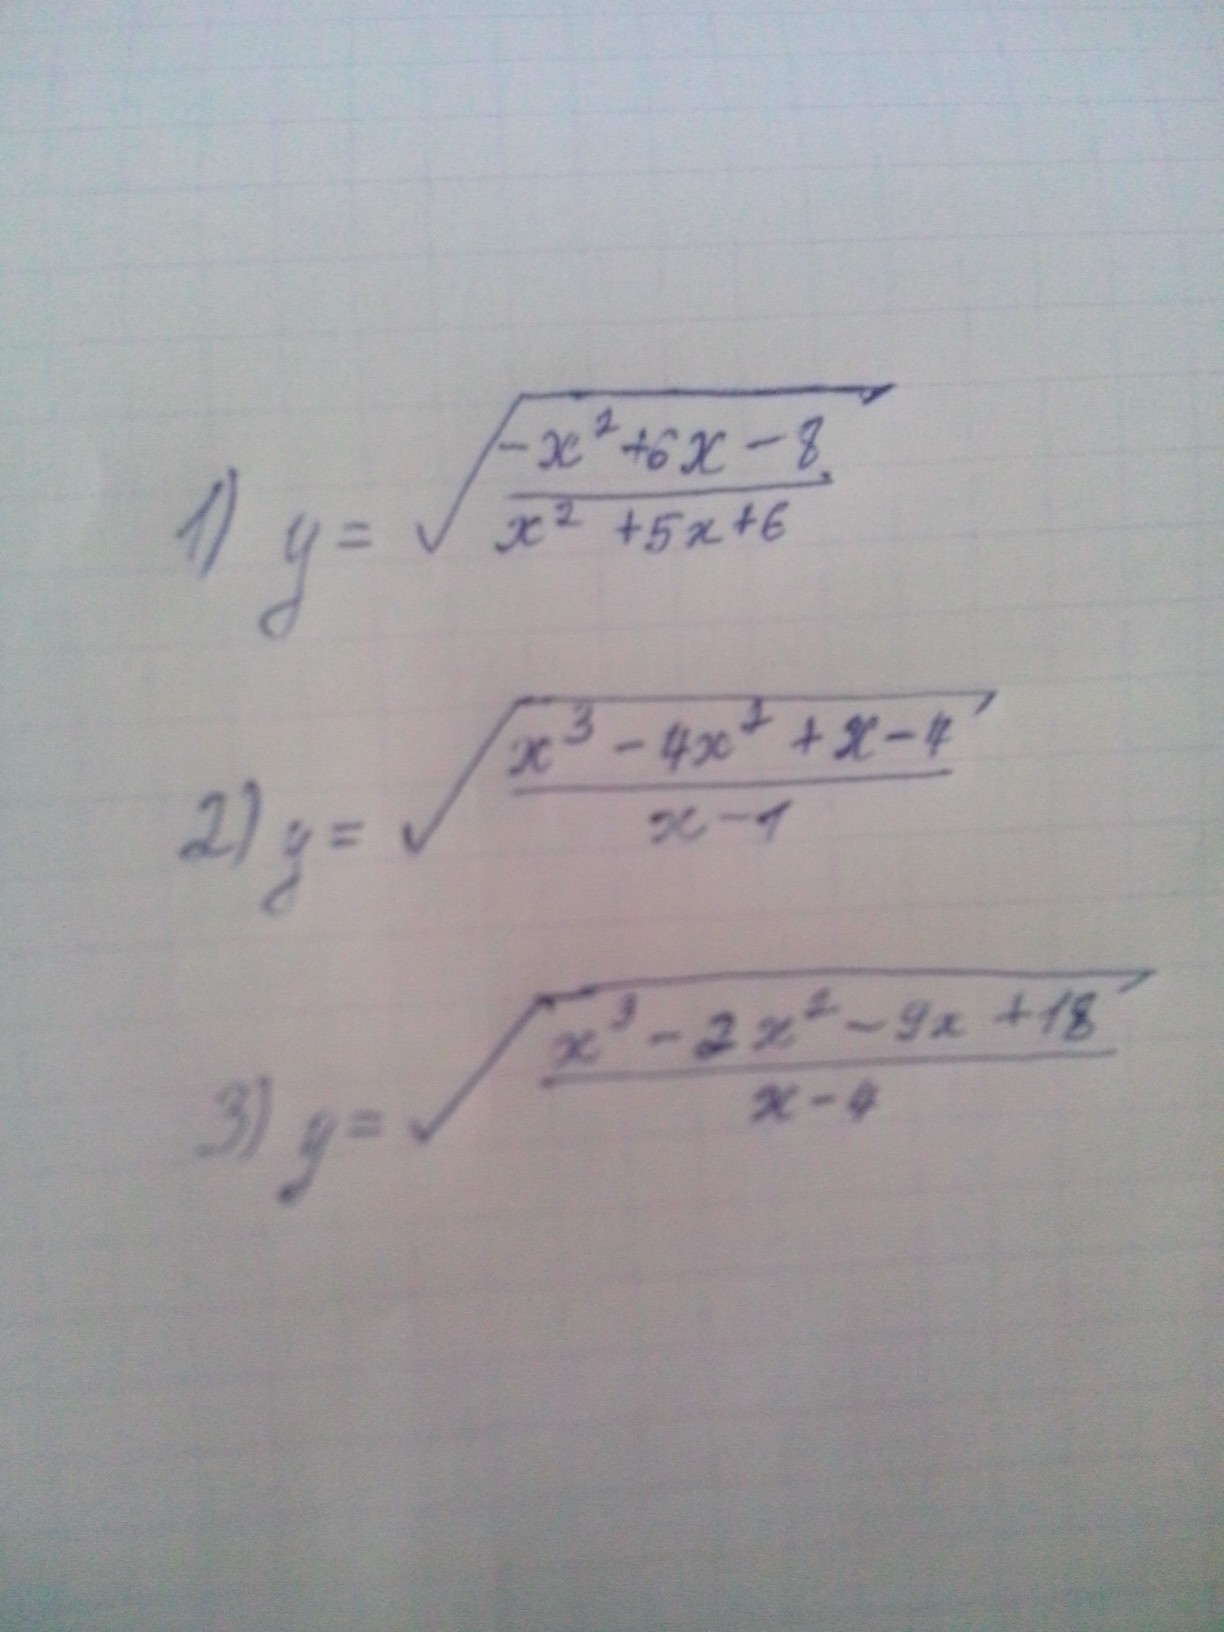 1) y = √((-x² + 6x - 8)/(x² + 5x + 6))
2) y = √((x³ - 4x² + x - 4)/(x - 1))
3) y = √((x³ - 2x² - 9x + 18)/(x - 4))